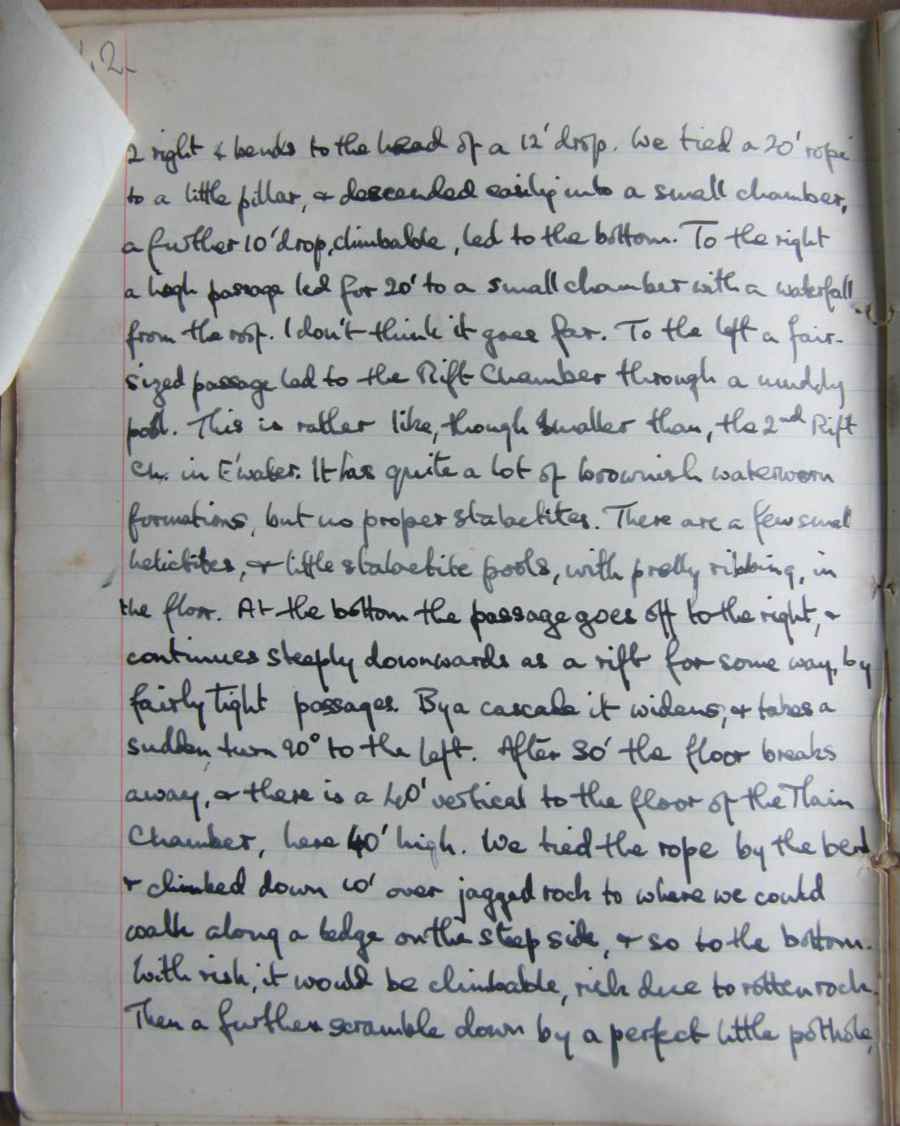 42
2 right & bends to the head of a 12' drop. We tied a 20' rope
to a little pillar, & descended easily into a small chamber,
a further 10' drop, climbable, led to the bottom. To the right
a high passage led for 20' to a small chamber with a waterfall
from the roof. I don't think it goes far. To the left a fair-
sized passage led to the Rift Chamber through a muddy
pool. This is rather like, though smaller than, the 2nd Rift
Ch. in E'water. It has quite a lot of brownish waterworn
formations, but no proper stalactites. There are a few small
helictites, & little stalactite pools, with pretty ribbing, in
the floor. At the bottom the passage goes off to the right, &
continues steeply downwards as a rift for some way, by
fairly tight passages. By a cascade it widens, & takes a
sudden turn 90° to the left. After 30' the floor breaks
away, & there is a 40' vertical to the floor of the Main
Chamber, here 40' high. We tied the rope by the bend
& climbed down 10' over jagged rock to where we could
walk along a ledge on the steep side, & so to the bottom.
With risk, it would be climbable, risk due to rotten rock.
Then a further scramble down by a perfect little pothole,